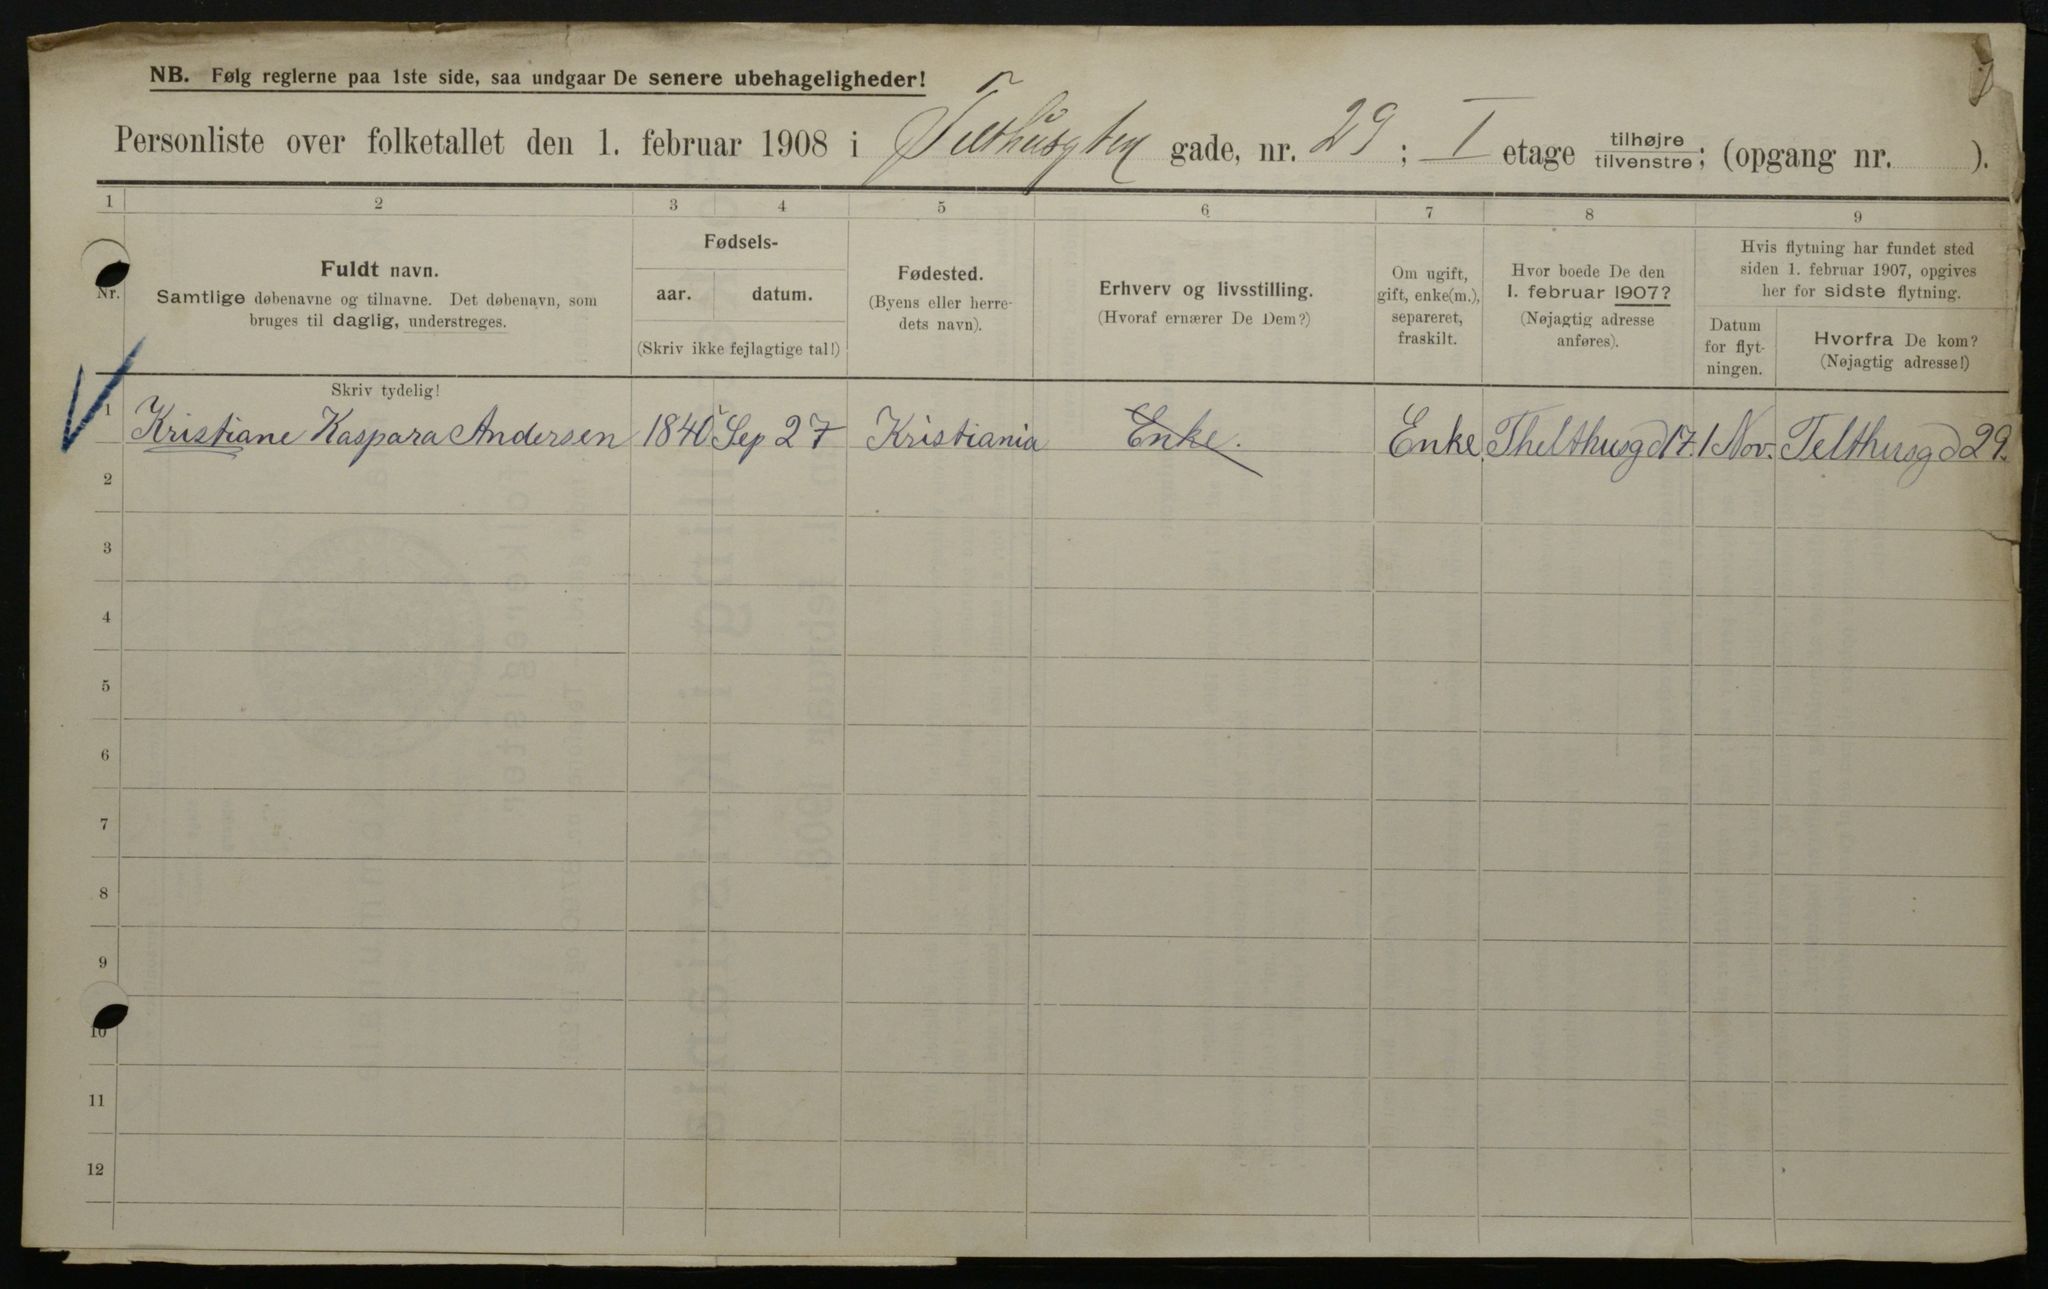 NB. Følg reglerne paa 1ste side, saa undgaar De senere ubehageligheder!
Personliste over folketallet den 1. februar 1908 i Telthusgten gade, nr. 29; I etage tilhøjre tilvenstre; (opgang nr. ).
1 2 3 4 5 6 7 8 9
Nr.
Fuldt navn.
Samtlige døbenavne og tilnavne. Det døbenavn, som
bruges til daglig, understreges.
Skriv tydelig!
Fødsels-
aar. datum.
(Skriv ikke fejlagtige tal!)
Fødested.
(Byens eller herre-
dets navn).
Erhverv og livsstilling.
(Hvoraf ernærer De Dem?)
Om ugift,
gift, enke(m.),
separeret,
fraskilt.
Hvor boede De den
1. februar 1907?
(Nøjagtig adresse
anføres).
Hvis flytning har fundet sted
siden 1. februar 1907, opgives
her for sidste flytning.
Datum
for flyt-
ningen.
Hvorfra De kom?
(Nøjagtig adresse!)
1 Kristiane Kaspara Andersen 1840 Sep 27 Kristiania Enke. Enke. Thelthusgd 17. 1 Nov. Telthusgd 29.
2
3
4
5
6
7
8
9
10
11
12